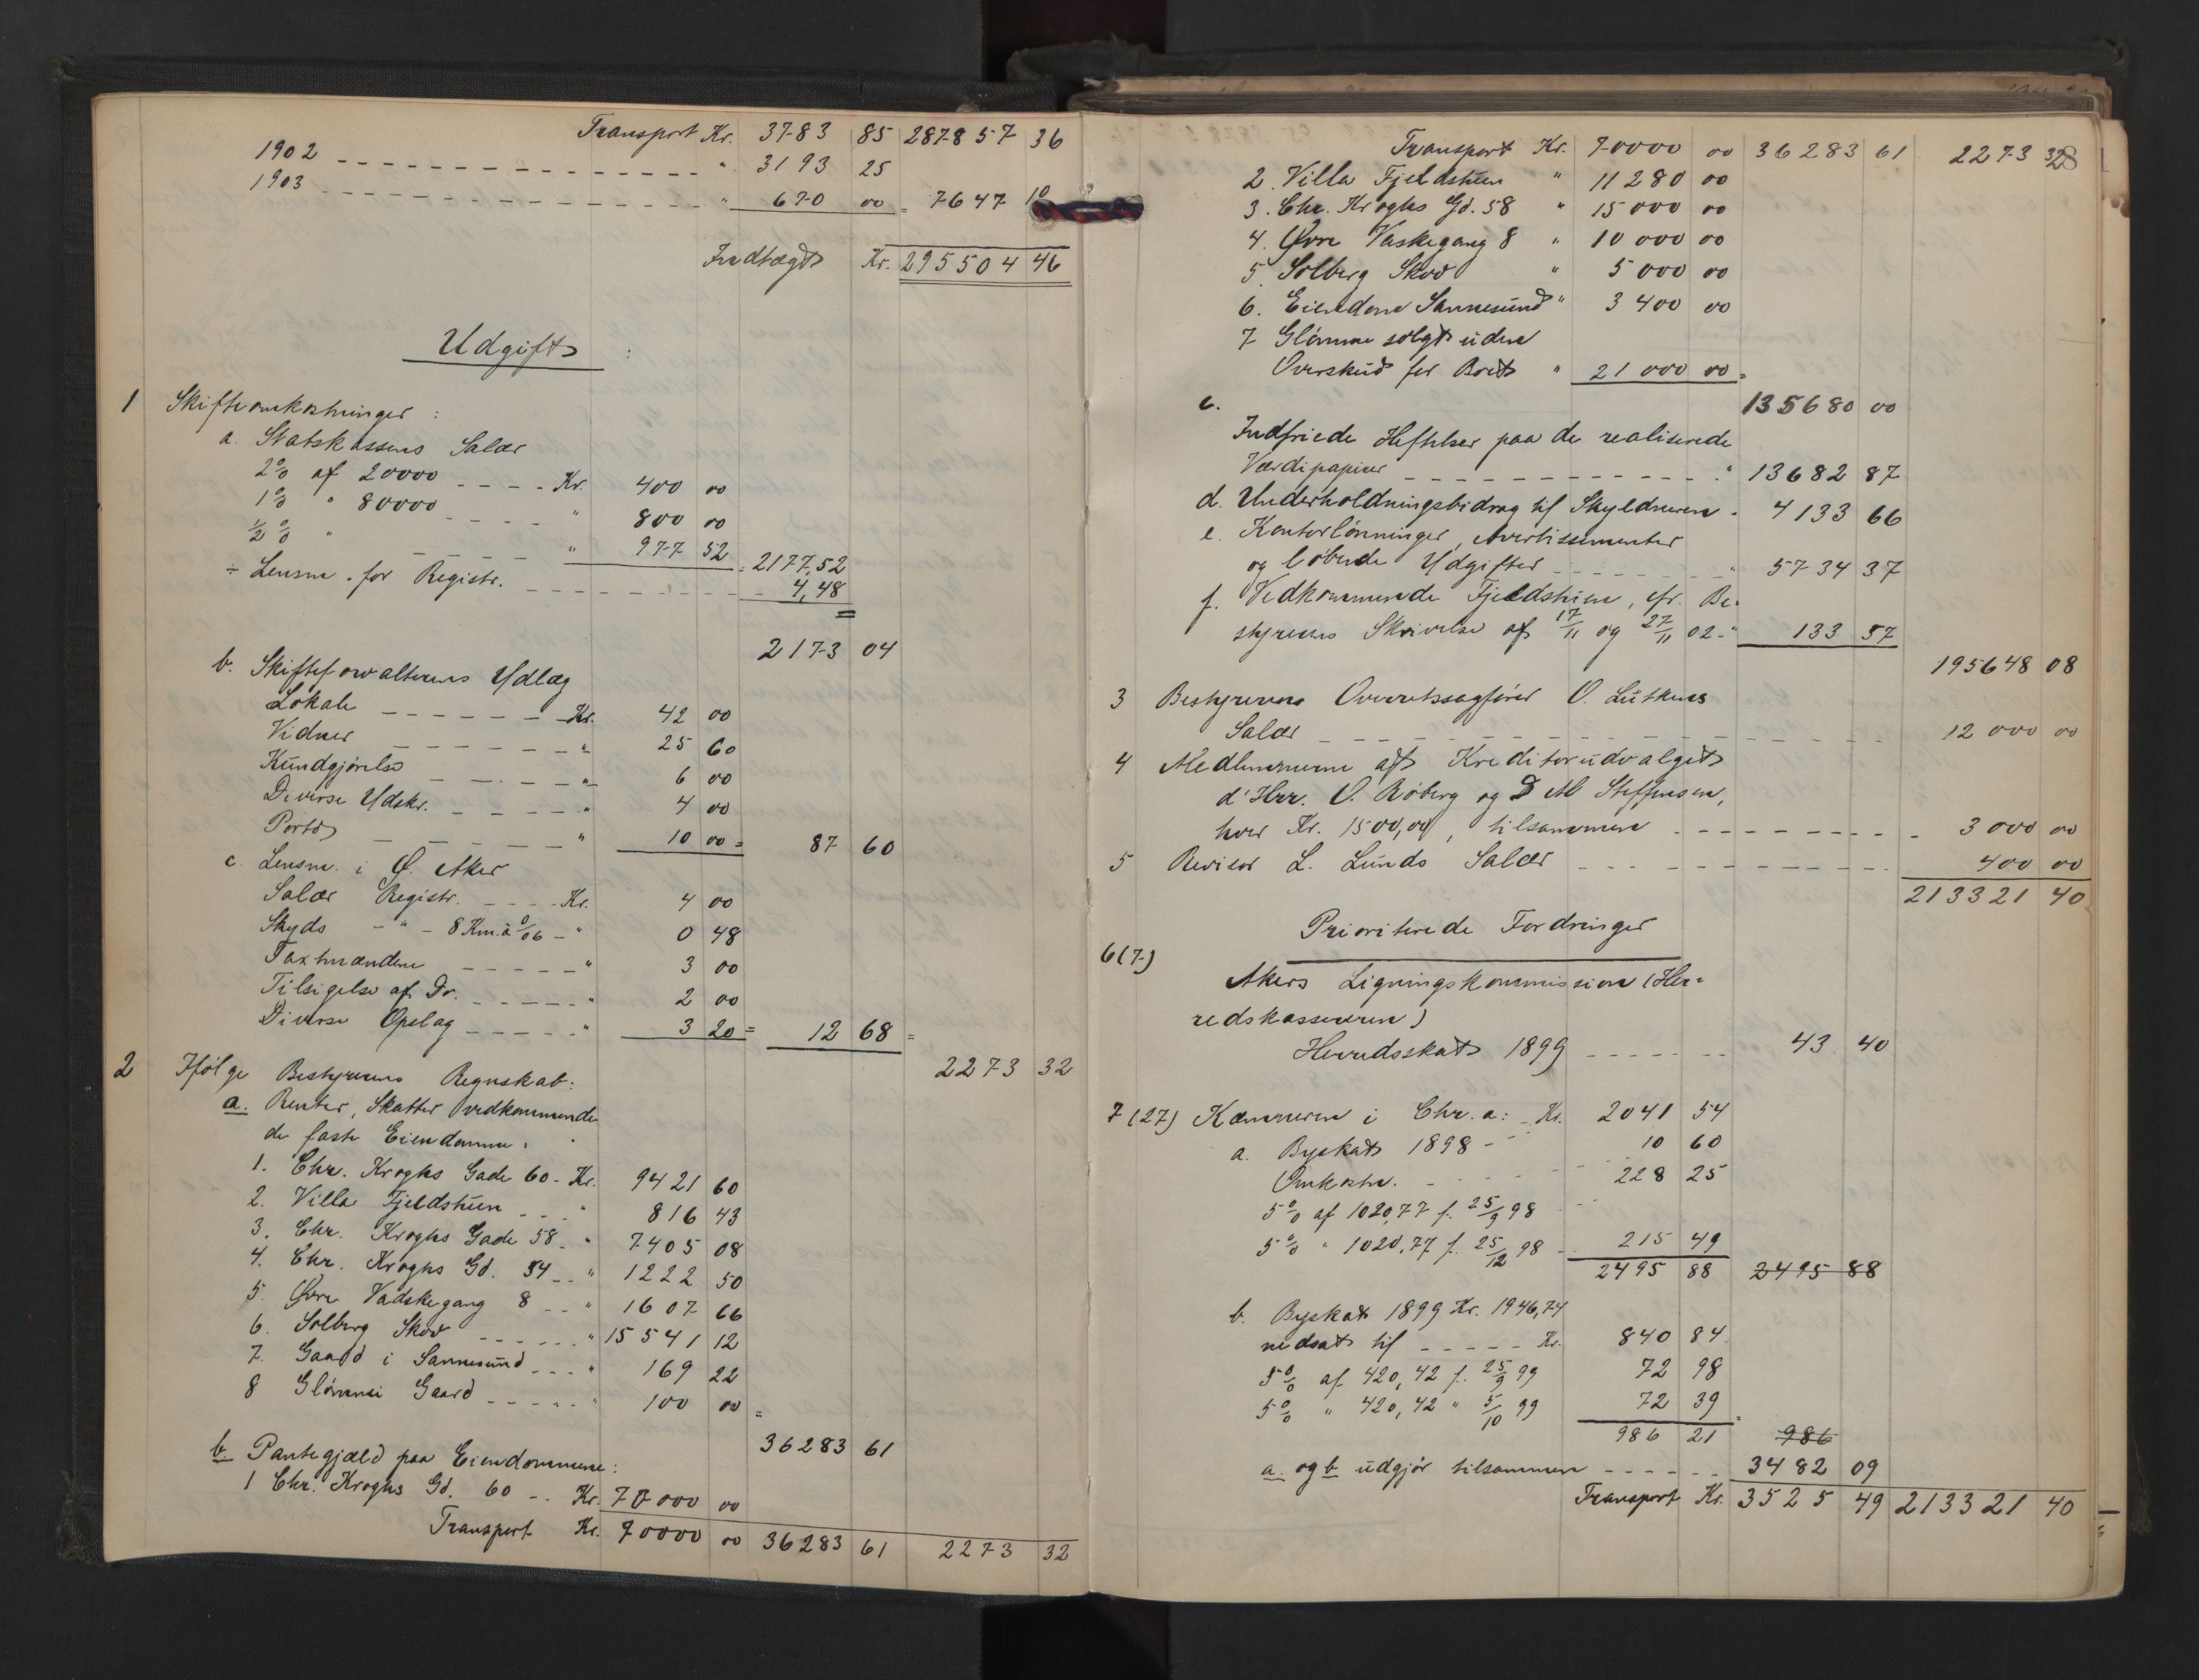 Transport Kr. 3783 85 287857 36
1902 - - - " 3193 25
1903 - - - " 670 00 = 7647 10
Indtægt Kr. 295504 46
Udgift :
1 Skifteomkostninger :
a. Statskassens Salær
2% af 20000 - - - - Kr. 400 00
1% " 80000 - - - - " 800 00
½% " - - - - " 977 52 = 2177,52
÷ Lensm. for Registr. - - - - 4,48
2173 04
b. Skifteforvalterens Udlæg
Lokale - - - - Kr. 42 00
Vidner - - - - " 25 60
Kundgjørelse - - - - " 6 00
Diverse Udskr. - - - - " 4 00
Porto - - - - " 10 00 = 87 60
c. Lensm. i Ø. Aker
Salær Registr. - - - - Kr. 4 00
Skyds - " - 8 Km. à 0/06 - " 0 48
Taxtmændene - - - - " 3 00
Tilsigelse af Do. - - - - " 2 00
Diverse Opslag - - - - " 3 20 = 12 68 =
2273 32
2 Ifølge Bestyrerens Regnskab:
a. Renter, Skatter vedkommende
de faste Eiendomme:
1. Chr. Kroghs Gade 60 - Kr. 9421 60
2. Villa Fjeldstuen - - - " 816 43
3. Chr. Kroghs Gade 58 - " 7405 08
4. Chr. Kroghs Gd. 54 - - " 1222 50
5. Øvre Vadskegang 8 - - " 1607 66
6. Solberg Skov - - - - " 15541 12
7. Gaard i Sannesund - - - " 169 22
8 Glommi Gaard - - - - " 100 00 =
36283 61
b. Pantegjæld paa Eiendommene:
1 Chr. Kroghs Gd. 60 - - Kr. 70000 00
Transport Kr. 70000 00 36283 61 2273 32
Transport Kr. 70000 00 36283 61 2273 32
2. Villa Fjeldstuen " 11280 00
3. Chr. Kroghs Gd. 58 " 15000 00
4. Øvre Vaskegang 8 " 10000 00
5. Solberg Skov " 5000 00
6. Eiendom Sannesund " 3400 00
7 Glomme solgt uden
Overskud for Boet " 21000 00 =
135680 00
c.
Indfriede Heftelser paa de realiserede
Værdipapirer - - - - " 13682 87
d. Underholdningsbidrag til Skyldneren " 4133 66
e. Kontorlønninger, Avertissementer
og løbende Udgifter - - - - " 5734 37
f. Vedkommende Fjeldstuen, cfr. Be-
styrerens Skrivelse af 17/11 og 27/11 02 - " 133 57
195648 08
3 Bestyrerens Overretssagfører O. Lütkens
Salær - - - - 12000 00
4 Medlemmerne af Kreditorudvalget
d'Hrr. O. Röberg og D M Steffensen,
hver Kr. 1500,00, tilsammen - - - - 3000 00
5 Revisor L. Lunds Salær - - - - 400 00
213321 40
Prioriterede Fordringer
6(7)
Akers Ligningskommission (Her-
redskassereren)
Herredsskat 1899 - - - - 43 40
7 (27) Kæmneren i Chr.a: - Kr. 2041 54
a. Byskat 1898 - " 10 60
Omkostn. - - - 228 25
5% af 1020,77 f. 25/9 98
5% " 1020,77 f. 25/12 98 - 215 49
2495 88 2495 88
b. Byskat 1899 Kr. 1946,74
nedsat til - - - - Kr. 840 84
5% af 420,42 f. 25/9 99 72 98
5% " 420,42 " 5/10 99 72 39
986 21 = 986
a. og b. udgjør tilsammen - - - - 3482 09
Transport Kr. 3525 49 213321 40